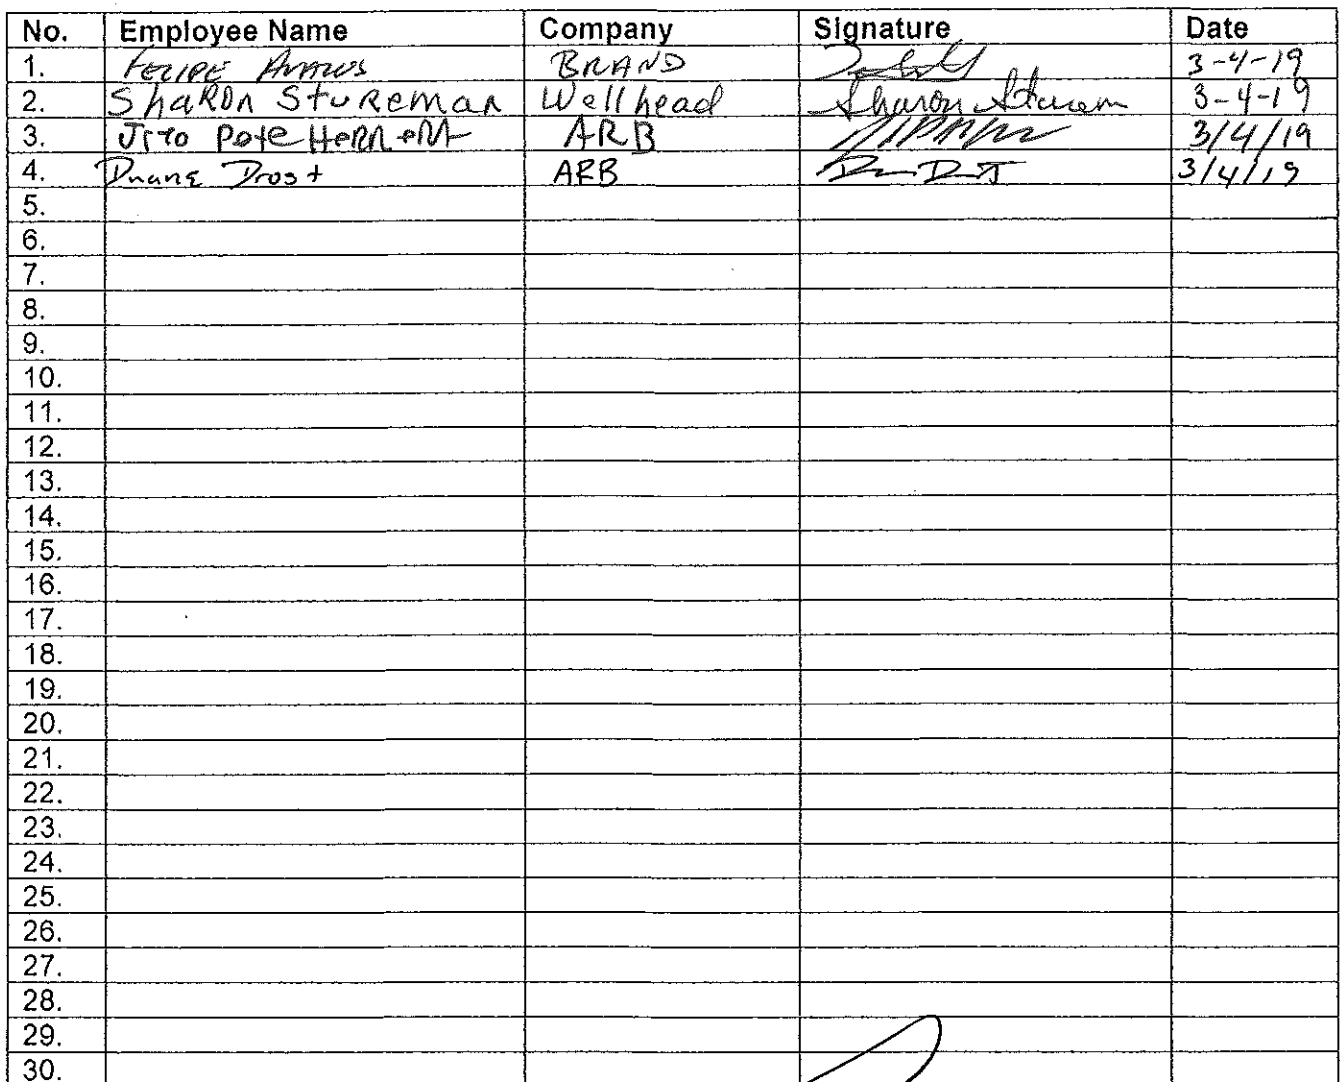 No. Employee Name Company Signature Date
1. FELIPE AVALOS BRAND 3-4-19
2. ShaRon StuReman Wellhead Sharon 3-4-19
3. ARB 3/4/19
4. Duane Drost ARB 3/4/19
5.
6.
7.
8.
9.
10.
11.
12.
13.
14.
15.
16.
17.
18.
19.
20.
21.
22.
23.
24.
25.
26.
27.
28.
29.
30.